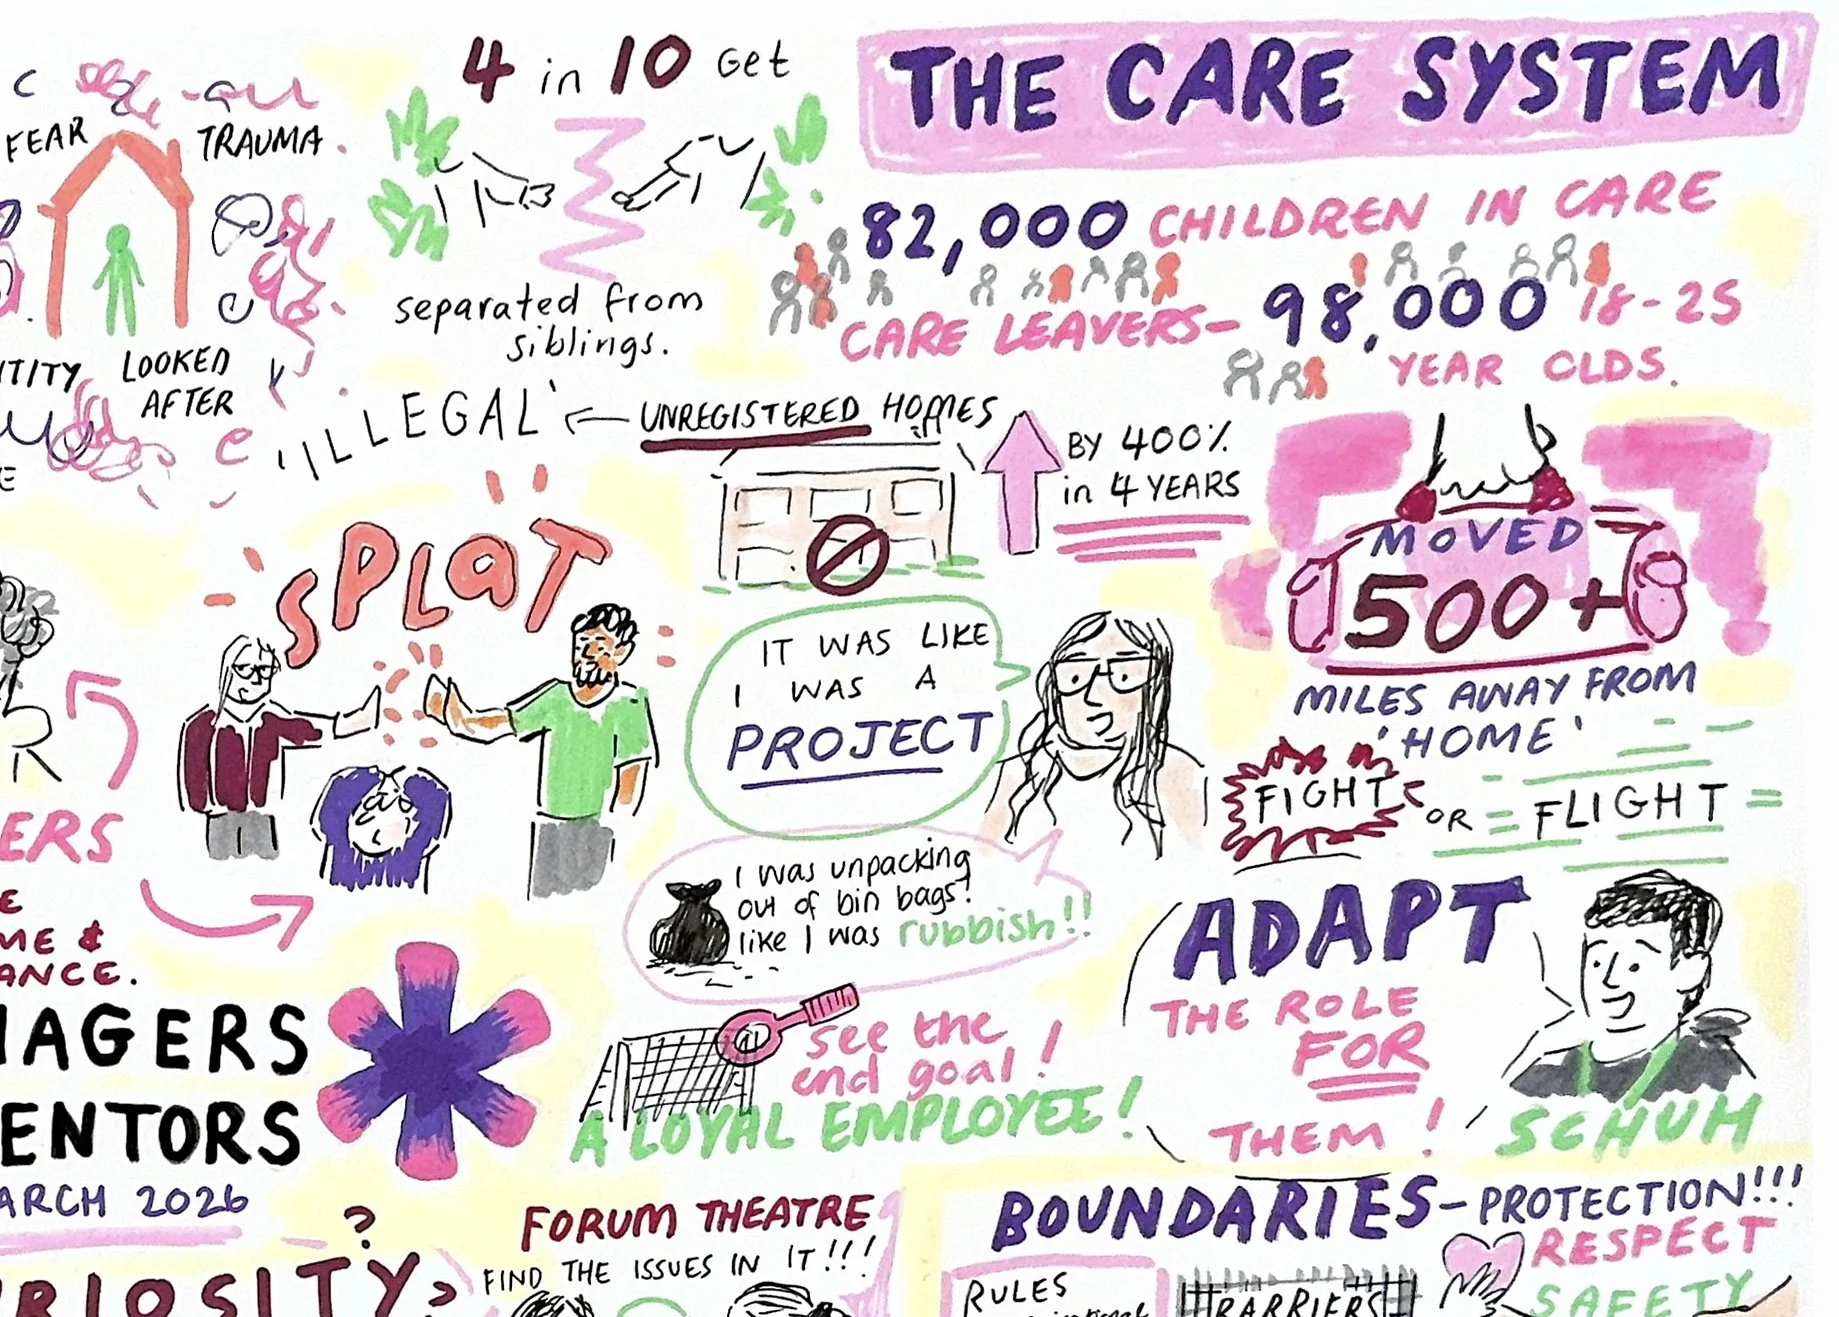 4 in 10 Get
separated from
siblings.
THE CARE SYSTEM
82,000 CHILDREN IN CARE
CARE LEAVERS- 98,000 18-25
YEAR OLDS.
FEAR
TRAUMA.
LOOKED
AFTER
'ILLEGAL' ← UNREGISTERED HOMES
BY 400%
in 4 YEARS
MOVED
500+
MILES AWAY FROM
'HOME'
SPLaT
IT WAS LIKE
I WAS A
PROJECT
FIGHT OR = FLIGHT =
I was unpacking
out of bin bags!
like I was rubbish!!
ADAPT
THE ROLE
FOR
THEM!
SCHUH
see the
end goal!
A LOYAL EMPLOYEE!
ERS
ME &
ANCE.
AGERS
ENTORS
ARCH 2026
RIOSITY?
?
FORUM THEATRE
FIND THE ISSUES IN IT!!!
BOUNDARIES-PROTECTION!!!
RESPECT
SAFETY
RULES
BARRIERS